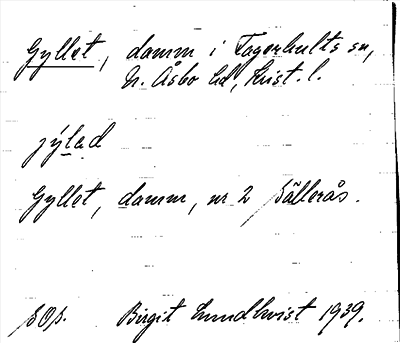 Gyllet, damm i Fagerhults sn,
N. Åsbo hd, Krist. l.
jýlad
Gyllet, damm, nr 2 Sällerås.
sOp. Birgit Lundkvist 1939.